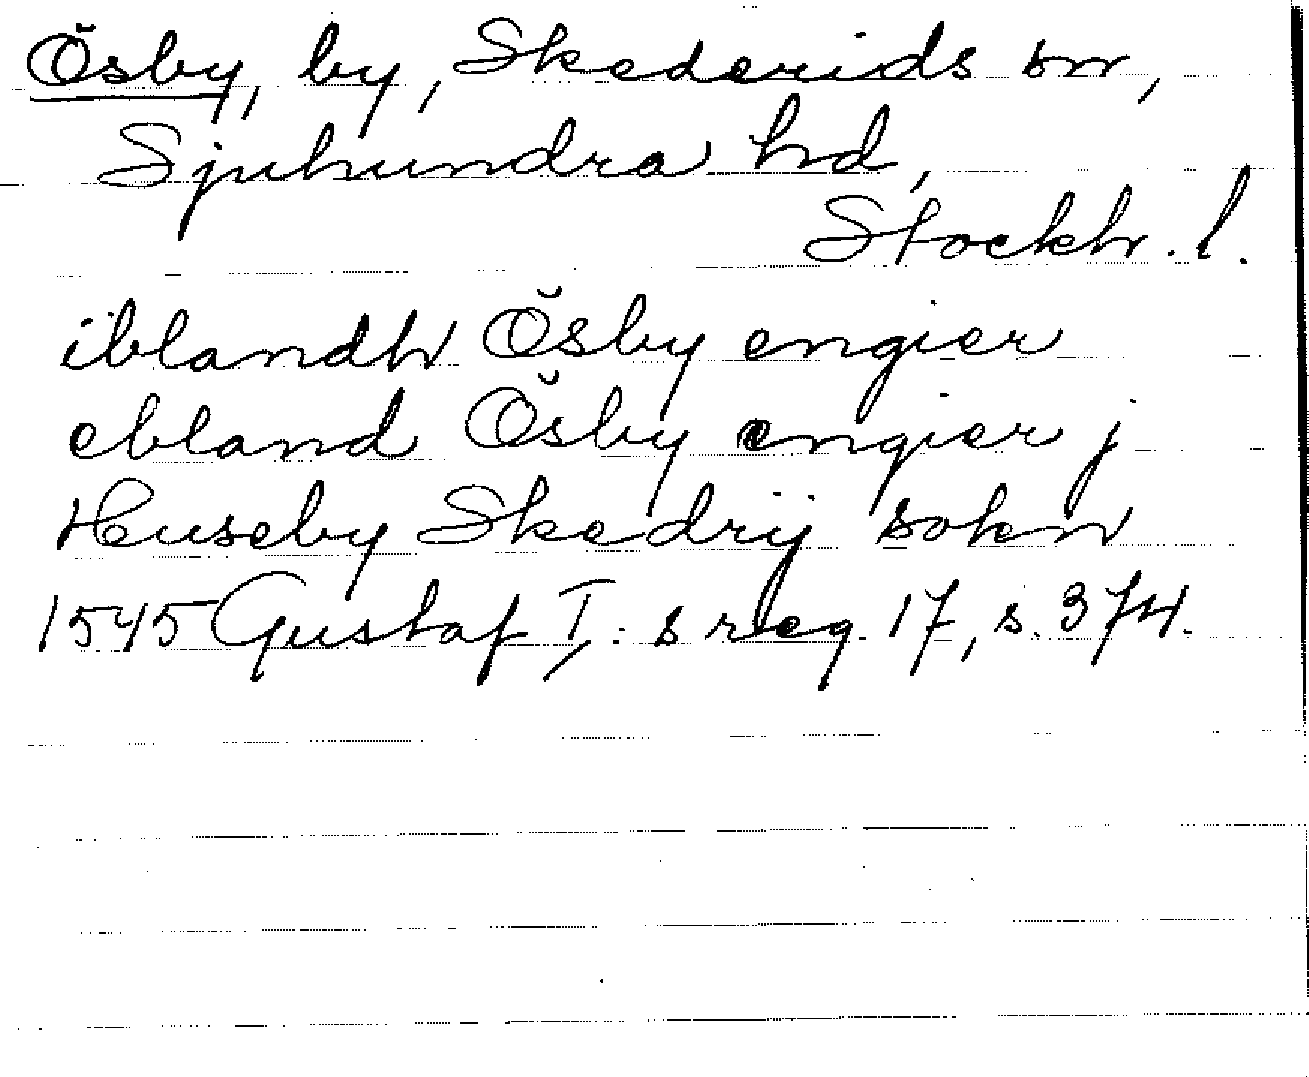 Ösby, by, Skederids sn,
Sjuhundra hd,
Stockh. l.
iblandh Ösby engier
ebland Ösby engier j
Huseby Skedrij sokn
1545 Gustaf I: s reg. 17, s. 374.